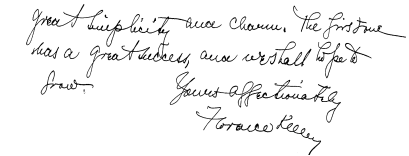 great simplicity and charm. The first one
was a great success, and we shall hope to
grow. Yours affectionately
Florence Kelley